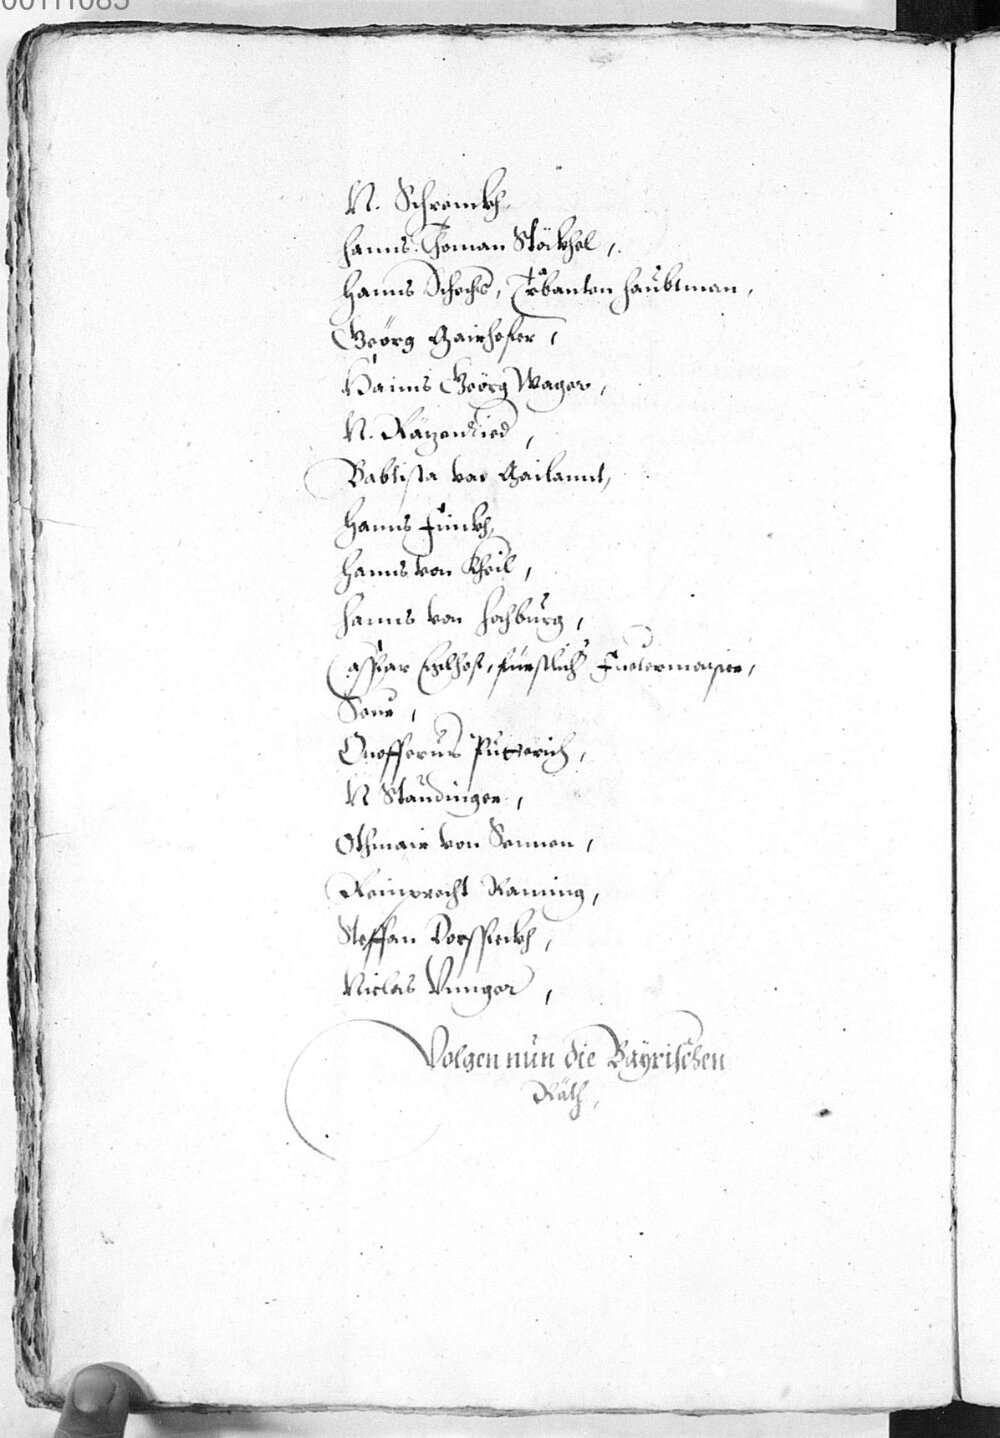 00111085
N. Schrenckh.
Hanns Thoman Stöckhel,
Hanns Schoch, Trabanten Haubtman,
Geörg Mairhofer,
Hanns Geörg Wager,
N. Räzenried,
Babtista von Mailannt,
Hanns Funckh,
Hanns von Kheil,
Hanns von Hochburg,
Caspar Gelhof, fürstlich Fuetermaister,
Senn,
Onofferus Pütterich,
N Staudinger,
Othmair von Sennen,
Reinprecht Raming,
Steffan Dorffpeckh,
Niclas Vnnger,
Volgen nun die Bayrischen
Räth,